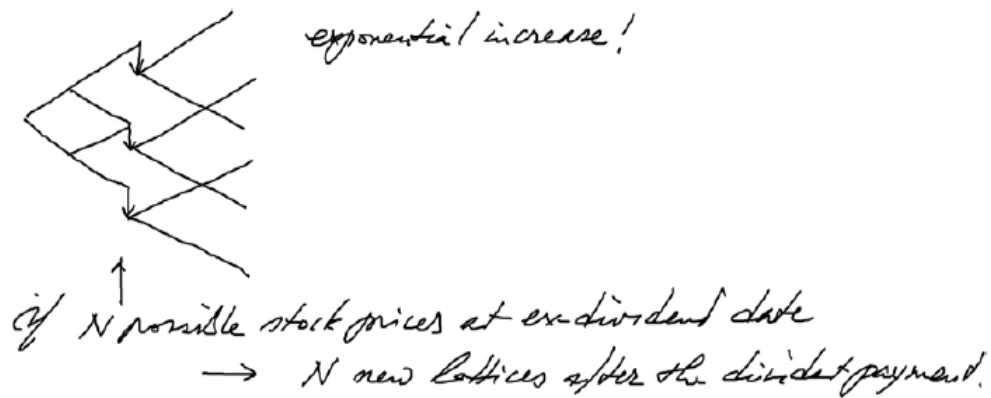 exponential increase!
if N possible stock prices at ex-dividend date
→ N new lattices after the divident payment.